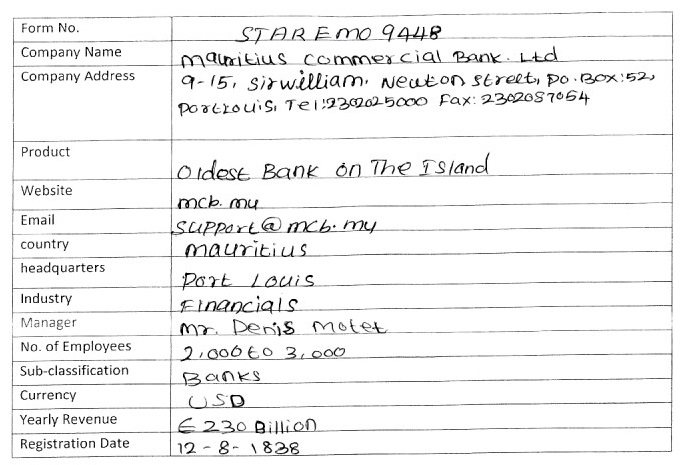 Form No. STAR EMO 9448
Company Name Mauritius Commercial Bank. Ltd
Company Address 9-15, Sirwilliam, Newton Street, Po.Box:52,
PortLouis, Tel:2302025000 Fax: 2302087054
Product Oldest Bank on The Island
Website mcb.mu
Email support@mcb.mu
country mauritius
headquarters Port Louis
Industry Financials
Manager Mr. Denis Motet
No. of Employees 2,000 to 3,000
Sub-classification Banks
Currency USD
Yearly Revenue € 230 Billion
Registration Date 12-8-1838